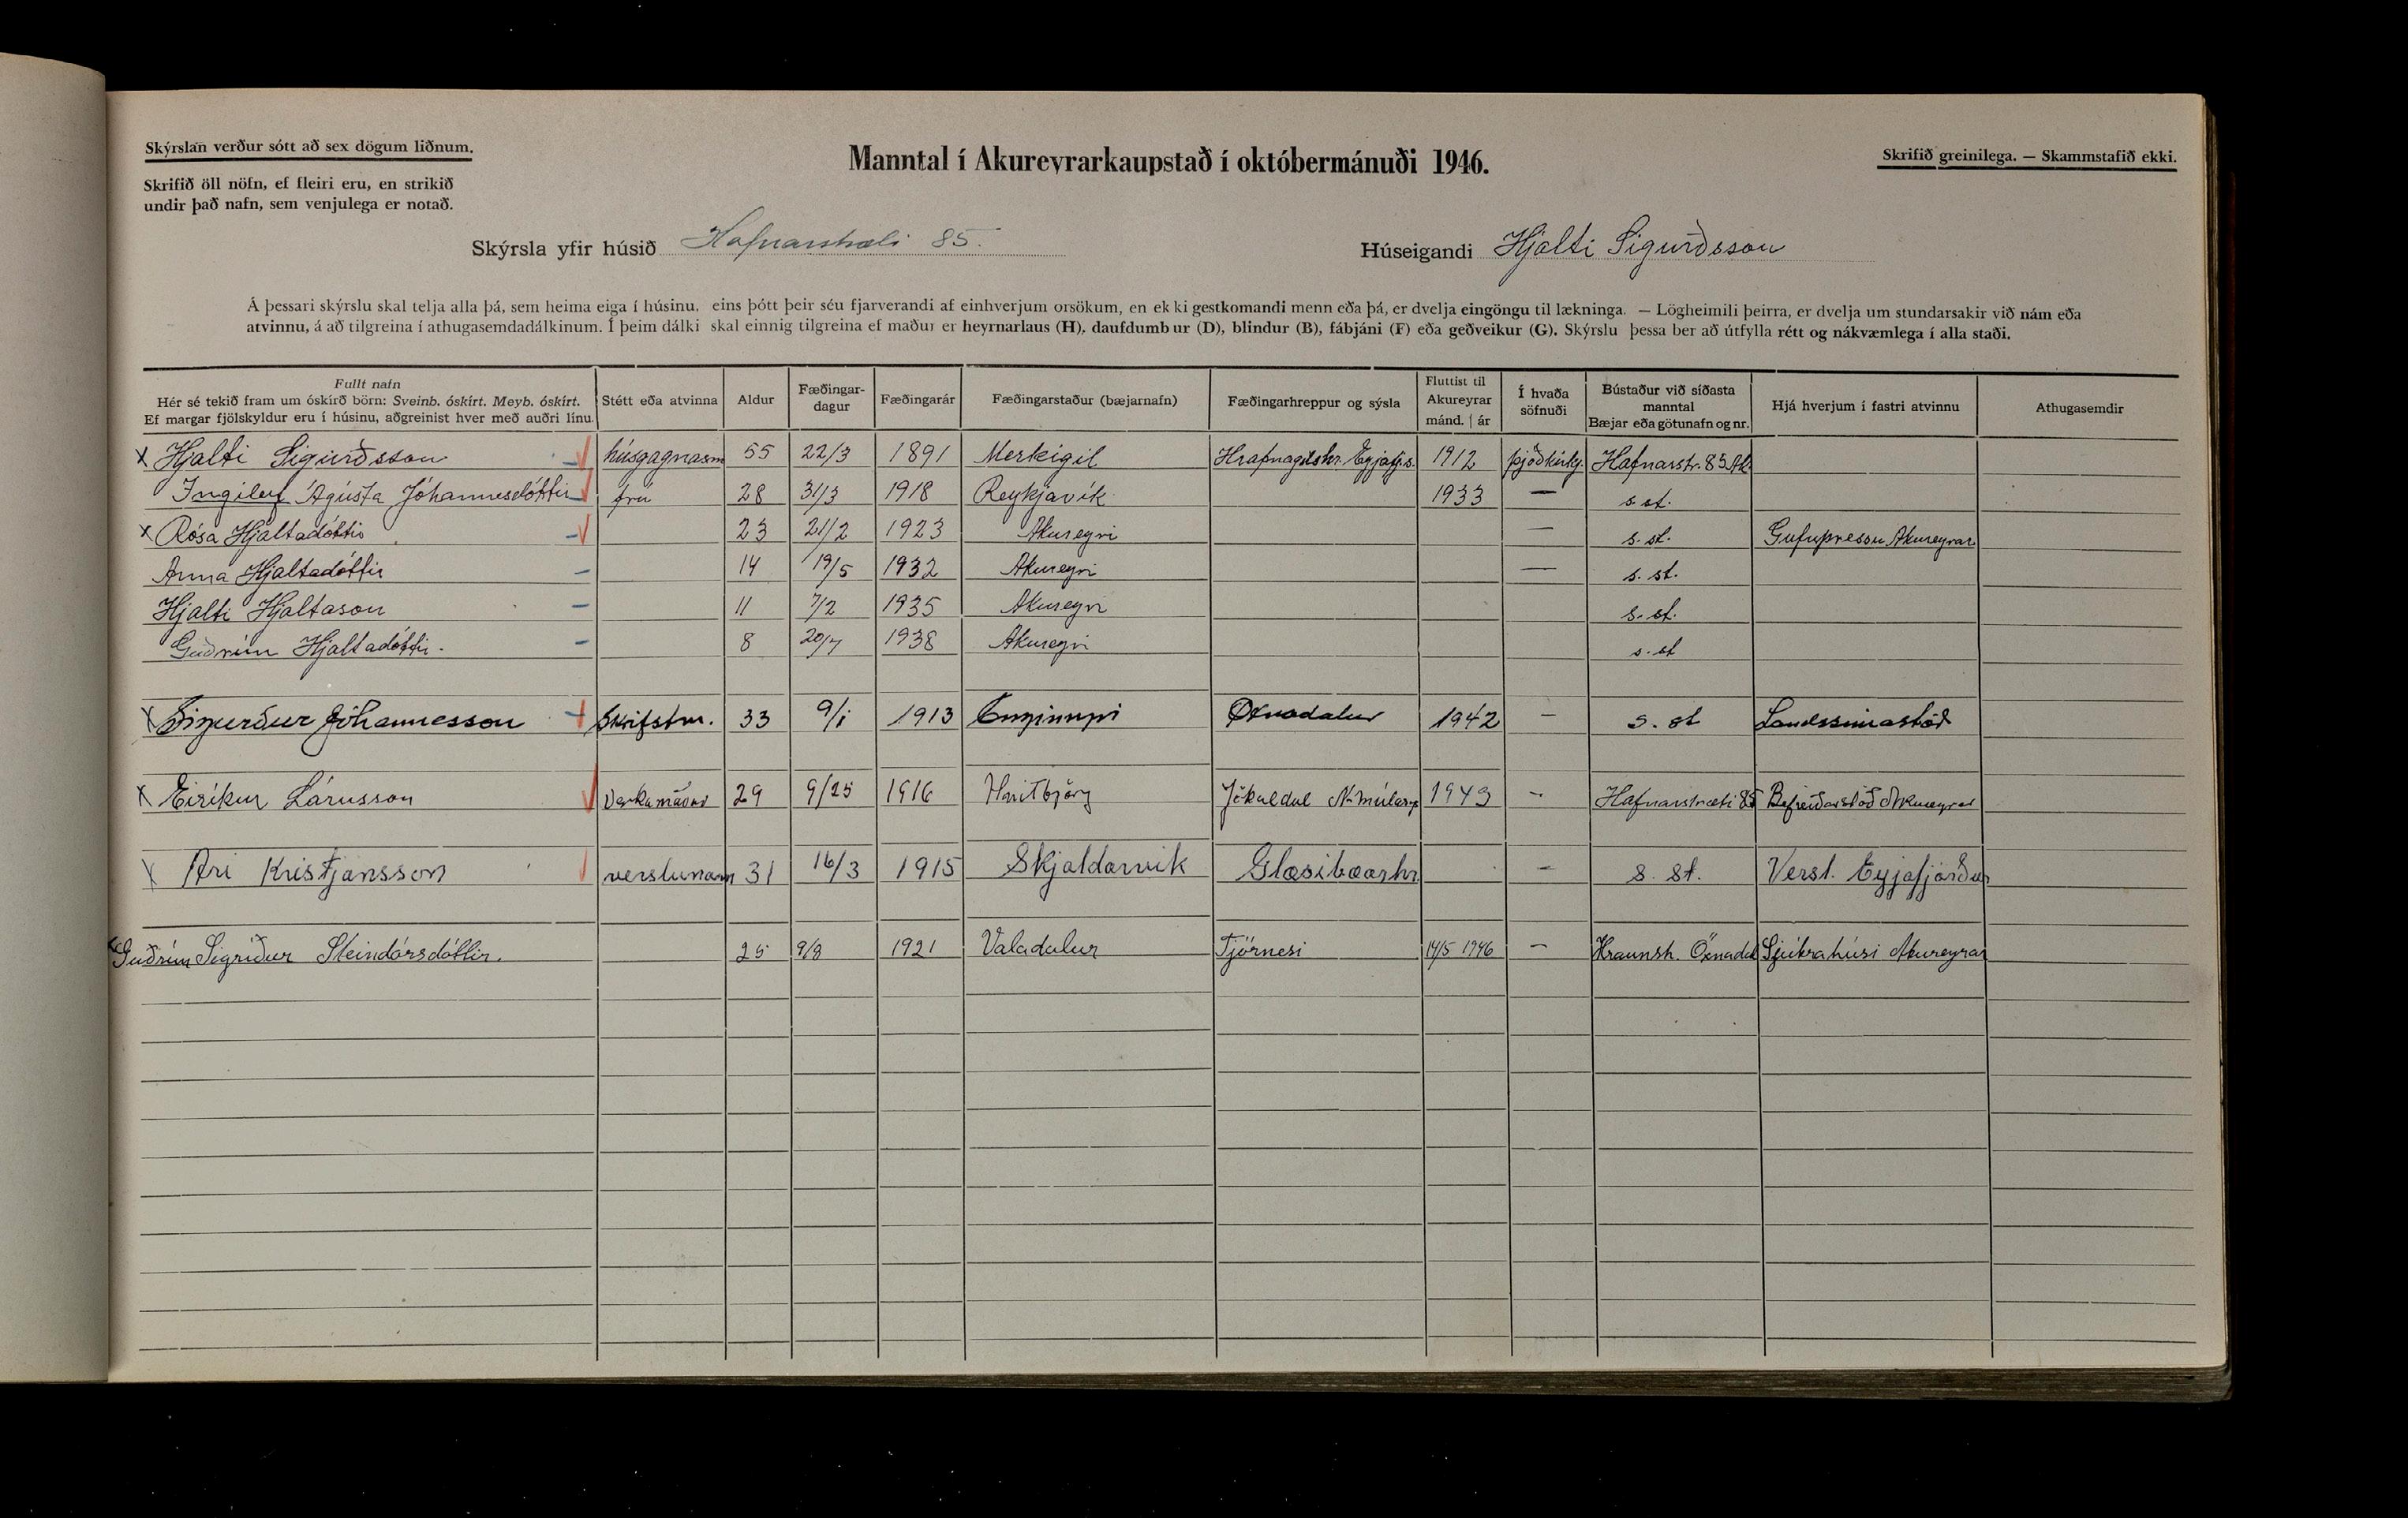 Skýrslan verður sótt að sex dögum liðnum.
Manntal í Akureyrarkaupstað í októbermánuði 1946.
Skrifið greinilega. — Skammstafið ekki.
Skrifið öll nöfn, ef fleiri eru, en strikið
undir það nafn, sem venjulega er notað.
Skýrsla yfir húsið Hafnarstræti 85.
Húseigandi Hjalti Sigurðsson
Á þessari skýrslu skal telja alla þá, sem heima eiga í húsinu, eins þótt þeir séu fjarverandi af einhverjum orsökum, en ekki gestkomandi menn eða þá, er dvelja eingöngu til lækninga. — Lögheimili þeirra, er dvelja um stundarsakir við nám eða
atvinnu, á að tilgreina í athugasemdadálkinum. Í þeim dálki skal einnig tilgreina ef maður er heyrnarlaus (H), daufdumbur (D), blindur (B), fábjáni (F) eða geðveikur (G). Skýrslu þessa ber að útfylla rétt og nákvæmlega í alla staði.
Fullt nafn
Hér sé tekið fram um óskírð börn: Sveinb. óskírt. Meyb. óskírt.
Ef margar fjölskyldur eru í húsinu, aðgreinist hver með auðri línu.
Stétt eða atvinna
Aldur
Fæðingar-
dagur
Fæðingarár
Fæðingarstaður (bæjarnafn)
Fæðingarhreppur og sýsla
Fluttist til
Akureyrar
mánd. | ár
Í hvaða
söfnuði
Bústaður við síðasta
manntal
Bæjar eða götunafn og nr.
Hjá hverjum í fastri atvinnu
Athugasemdir
x Hjalti Sigurðsson húsgagnasm 55 22/3 1891 Merkigil Hrafnagilshr. Eyjafj.s. 1912 þjóðkirkj. Hafnarstr. 85 Ak
Ingileif Ágústa Jóhannesdóttir frú 28 31/3 1918 Reykjavík 1933 — s. st.
x Rósa Hjaltadóttir 23 21/2 1923 Akureyri — s. st. Gufupressu Akureyrar
Anna Hjaltadóttir 14 19/5 1932 Akureyri — s. st.
Hjalti Hjaltason 11 7/2 1935 Akureyri s. st.
Guðrún Hjaltadóttir. 8 20/7 1938 Akureyri s. st
x Sigurður Jóhannesson Skrifstm. 33 9/1 1913 Engimýri Öxnadalur 1942 — s. st Landssímastöð
x Eiríkur Lárusson Verkamaður 29 9/25 1916 Jökuldal N-múlas 1943 — Hafnarstræti 85 Akureyrar
x Ari Kristjansson verslunarm 31 16/3 1915 Skjaldarvik Glæsibæarhr. — s. st. Versl. Eyjafjörður
x Guðrún Sigríður Steindórsdóttir. 25 9/8 1921 Valadalur Tjörnesi 14/5 1946 — Hraunsh. Öxnadal Sjúkrahúsi Akureyrar